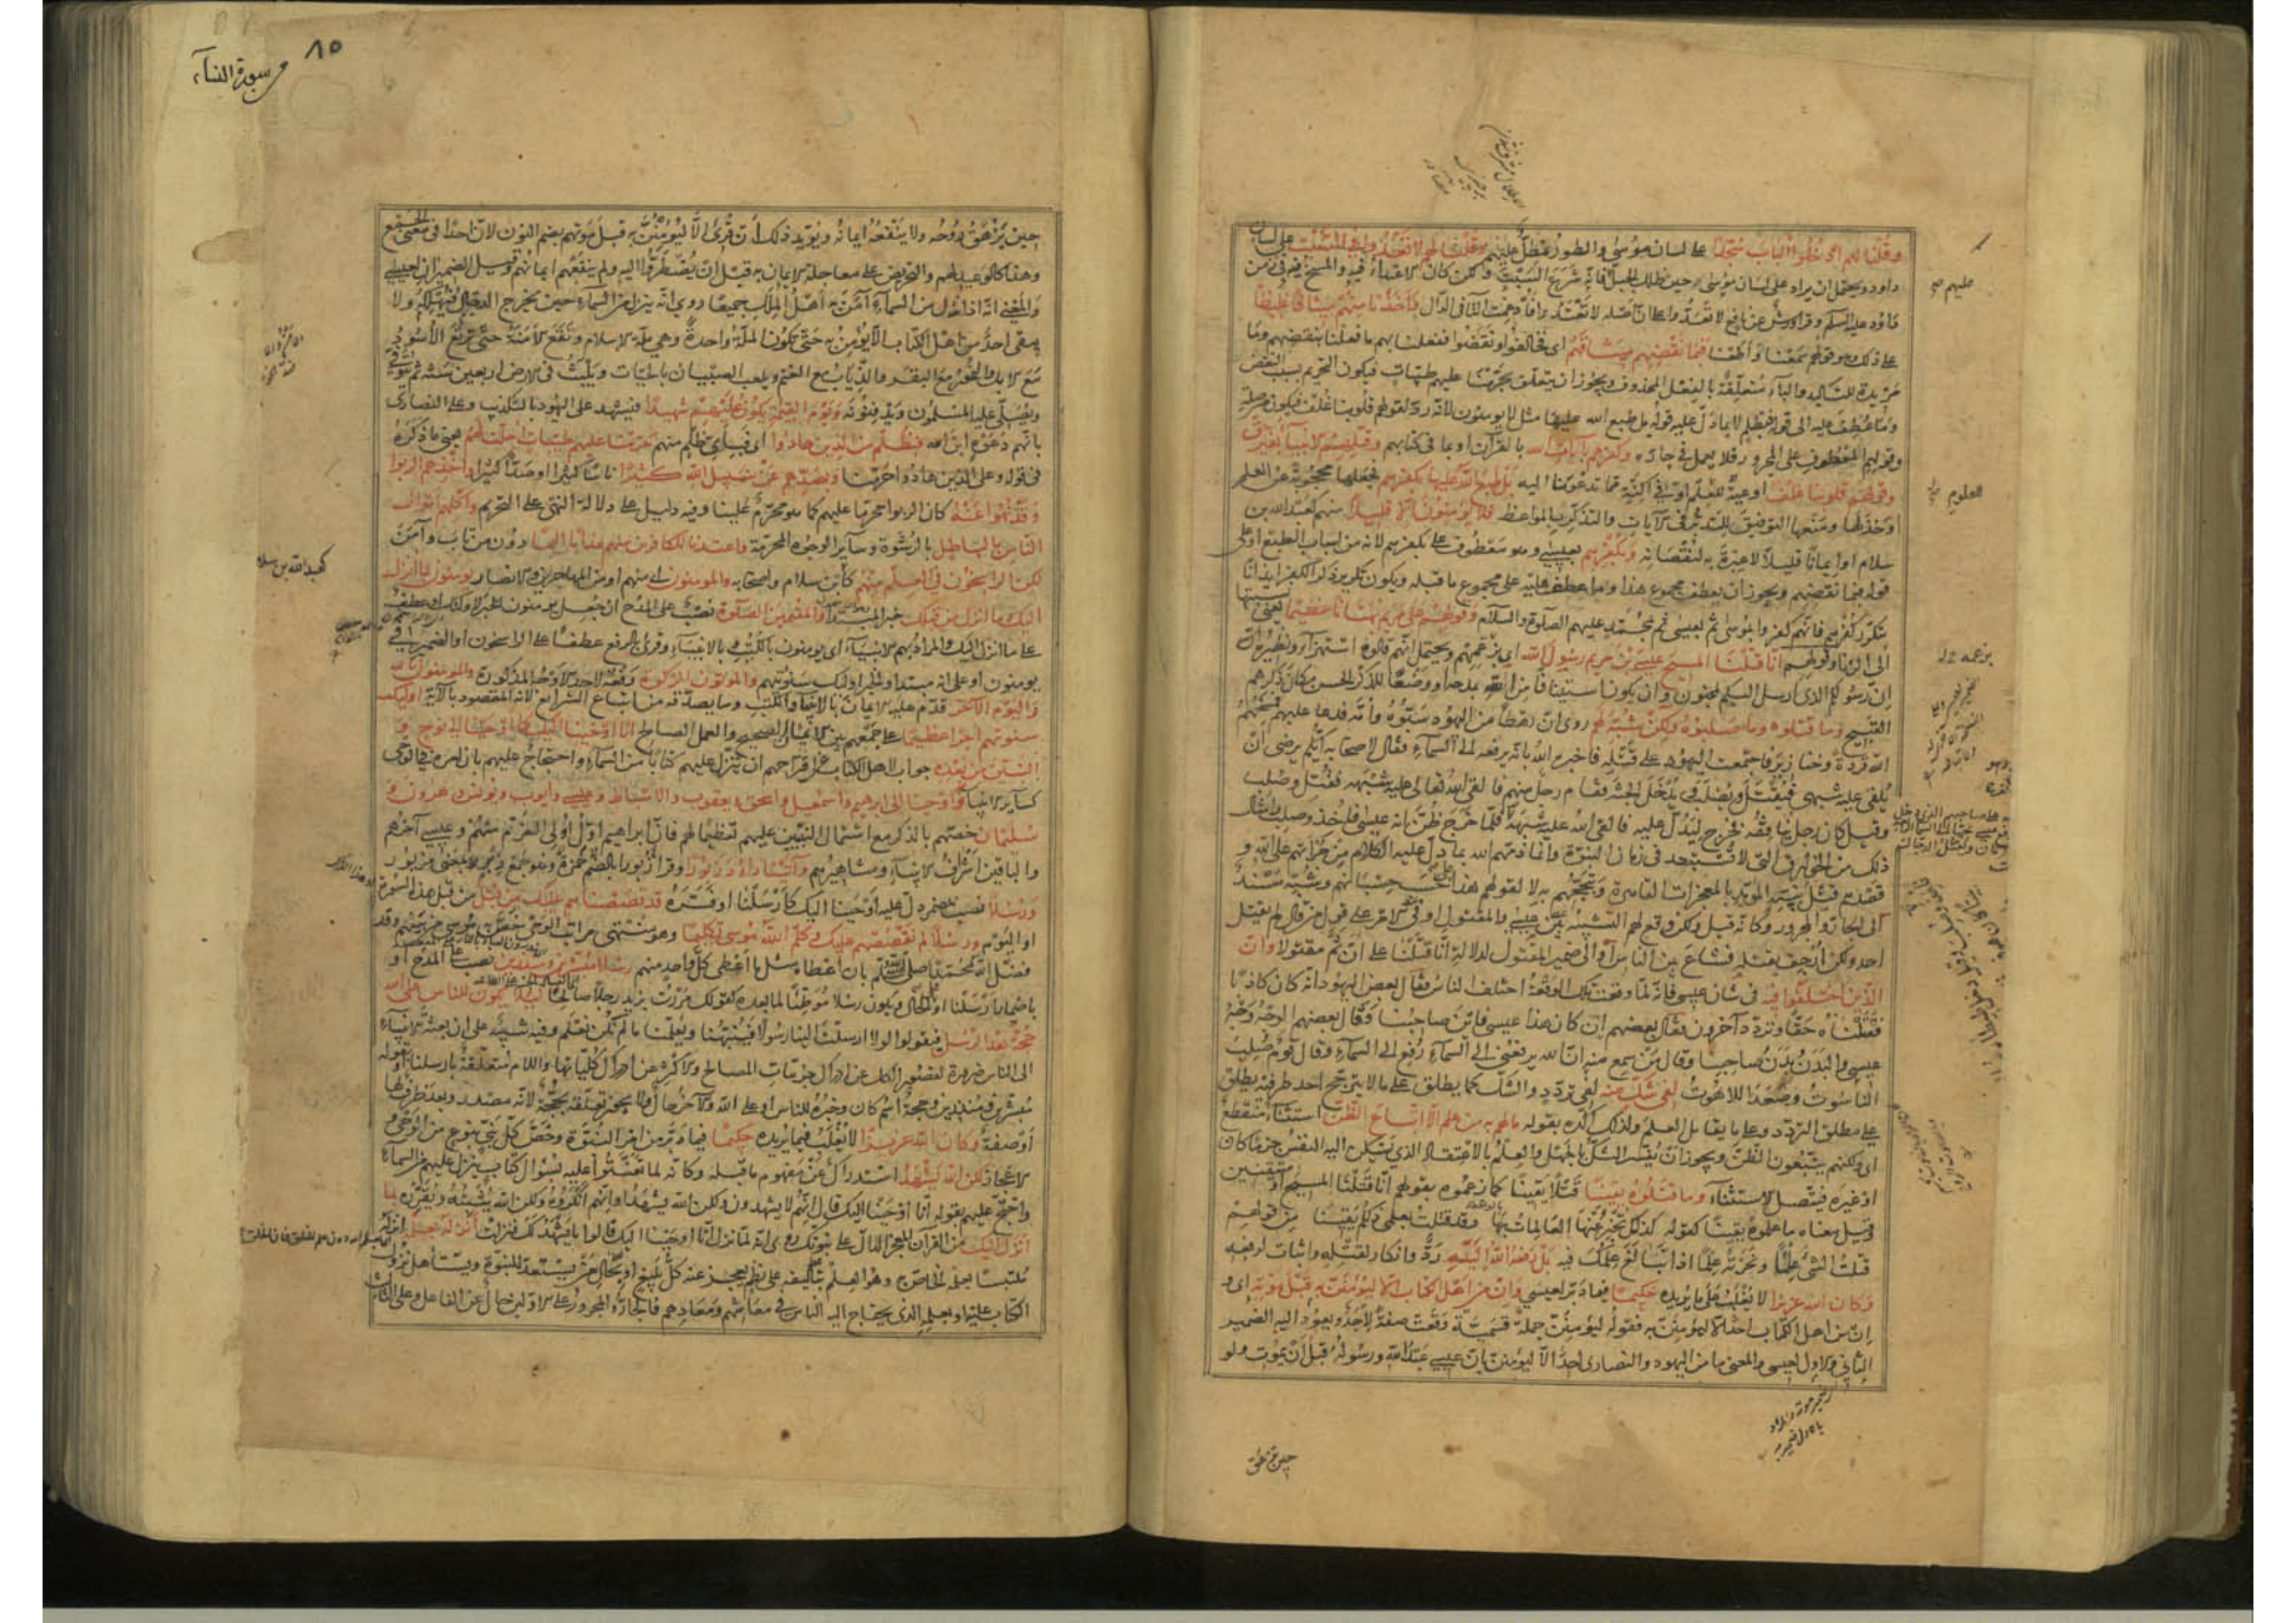 وقلنا لهم ادخلوا الباب سجدا على لسان موسى والطور مظل عليهم وقلنا لهم لا تعدوا في السبت على لسان
داود ويحتمل ان يراد على لسان موسى حين ظلل الجبل فانه شرع السبت ولكن كان الاعتداء فيه والمسخ به في زمن
داود عليه السلام وقرأ ورش عن نافع لا تعدوا على ان اصله لا تعتدوا فادغمت التاء في الدال واخذنا منهم ميثاقا غليظا
على ذلك وهو قولهم سمعنا واطعنا فبما نقضهم ميثاقهم اى فخالفوا ونقضوا ففعلنا بهم ما فعلنا بنقضهم وما
مزيدة للتاكيد والباء متعلقة بالفعل المحذوف ويجوز ان يتعلق بحرمنا عليهم طيبات فيكون التحريم بسبب النقض
وما عطف عليه الى قوله فبظلم لا بما دل عليه قوله بل طبع الله عليها مثل لا يؤمنون لانه رد لقولهم قلوبنا غلف فيكون من صلة
وقولهم المعطوف على المجرور فلا يعمل في جاره وكفرهم بايات الله بالقرآن او بما في كتابهم وقتلهم الانبياء بغير حق
وقولهم قلوبنا غلف اوعية للعلم او في اكنة مما تدعونا اليه بل طبع الله عليها بكفرهم فجعلها محجوبة عن العلم
او خذلها ومنعها التوفيق للتدبر في الآيات والتذكر بالمواعظ فلا يؤمنون الا قليلا منهم كعبد الله بن
سلام او ايمانا قليلا لا عبرة به لنقصانه وبكفرهم بعيسى وهو معطوف على بكفرهم لانه من اسباب الطبع او على
قوله فبما نقضهم ويجوز ان يعطف مجموع هذا وما عطف عليه على مجموع ما قبله ويكون تكرير ذكر الكفر ايذانا
بتكرر كفرهم فانهم كفروا بموسى ثم بعيسى ثم بمحمد عليهم الصلوة والسلام وقولهم على مريم بهتانا عظيما يعنى نسبتها
الى الزنا وقولهم انا قتلنا المسيح عيسى بن مريم رسول الله اى بزعمهم ويحتمل انهم قالوه استهزاء ونظيره ان
رسولكم الذى ارسل اليكم لمجنون وان يكون استينافا من الله بمدحه او وضعا للذكر الحسن مكان ذكرهم
القبيح وما قتلوه وما صلبوه ولكن شبه لهم روى ان رهطا من اليهود سبوه وامه فدعا عليهم فمسخهم
الله قردة وخنازير فاجتمعت اليهود على قتله فاخبره الله بانه يرفعه الى السماء فقال لاصحابه ايكم يرضى ان
يلقى عليه شبهى فيقتل ويصلب فيدخل الجنة فقام رجل منهم فالقى الله تعالى عليه شبهه فقتل وصلب
وقيل كان رجل ينافقه فخرج ليدل عليه فالقى الله عليه شبهه فلما خرج ظن انه عيسى فاخذ وصلب وامثال
ذلك من الخوارق التى لا تستبعد في زمان النبوة وانما ذمهم الله بما دل عليه الكلام من جرأتهم على الله و
قصدهم قتل نبيه المؤيد بالمعجزات القاهرة وتبجحهم به لا لقولهم هذا على حسب حسبانهم وشبه مسند
الى الجار والمجرور وكانه قيل ولكن وقع لهم التشبيه بين عيسى والمقتول او في الامر على قول من قال لم يقتل
احد ولكن ارجف بقتله فشاع بين الناس او الى ضمير المقتول لدلالة انا قتلنا على ان ثم مقتولا وان
الذين اختلفوا فيه في شان عيسى فانه لما وقعت تلك الوقعة اختلف الناس فقال بعض اليهود انه كان كاذبا
فقتلناه حقا وتردد آخرون فقال بعضهم ان كان هذا عيسى فاين صاحبنا وقال بعضهم الوجه وجه
عيسى والبدن بدن صاحبنا وقال من سمع منه ان الله يرفعنى الى السماء رفع الى السماء وقال قوم صلب
الناسوت وصعد اللاهوت لفى شك منه لفى تردد والشك كما يطلق على ما لا يترجح احد طرفيه يطلق
على مطلق التردد وعلى ما يقابل العلم ولذلك اكده بقوله ما لهم به من علم الا اتباع الظن استثناء منقطع
اى ولكنهم يتبعون الظن ويجوز ان يفسر الشك بالجهل والعلم بالاعتقاد الذى تسكن اليه النفس جزما كان
او غيره فيتصل الاستثناء وما قتلوه يقينا قتلا يقينا كما زعموه بقولهم انا قتلنا المسيح او متيقنين
وقيل معناه ما علموه يقينا كقوله كذلك تخبر عنها العالمات بها وقد قتلت بعلمى ذلكم يقينا من قولهم
قتلت الشئ علما ونحرته علما اذا تبالغ علمك فيه بل رفعه الله اليه رد وانكار لقتله واثبات لرفعه
وكان الله عزيزا لا يغلب على ما يريده حكيما فيما دبر لعيسى وان من اهل الكتاب الا ليؤمنن به قبل موته اى و
ان من اهل الكتاب احد الا ليؤمنن به فقوله ليؤمنن جملة قسمية وقعت صفة لاحد ويعود اليه الضمير
الثانى والاول لعيسى والمعنى ما من اليهود والنصارى احد الا ليؤمنن بان عيسى عبد الله ورسوله قبل ان يموت ولو
عليهم
العلوم
حين تزهق
٨٥
سورة النساء
حين تزهق روحه ولا ينفعه ايمانه ويؤيد ذلك ان قرئ الا ليؤمنن به قبل موتهم بضم النون لان احدا في معنى الجمع
وهذا كالوعيد لهم والتحريض على معاجلة الايمان به قبل ان يضطروا اليه ولم ينفعهم ايمانهم وقيل الضميران لعيسى
والمعنى انه اذا نزل من السماء آمن به اهل الملل جميعا روى انه ينزل من السماء حين يخرج الدجال فيهلكه ولا
يبقى احد من اهل الكتاب الا يؤمن به حتى تكون الملة واحدة وهى ملة الاسلام وتقع الامنة حتى ترتع الاسود
مع الابل والنمر مع البقر والذئاب مع الغنم ويلعب الصبيان بالحيات ويلبث في الارض اربعين سنة ثم يتوفى
ويصلى عليه المسلمون ويدفنونه ويوم القيمة يكون عليهم شهيدا فيشهد على اليهود بالتكذيب وعلى النصارى
بانهم دعوه ابن الله فبظلم من الذين هادوا اى فبأى ظلم منهم حرمنا عليهم طيبات احلت لهم يعنى ما ذكره
في قوله وعلى الذين هادوا حرمنا وبصدهم عن سبيل الله كثيرا ناسا كثيرا او صدا كثيرا واخذهم الربوا
وقد نهوا عنه كان الربوا محرما عليهم كما هو محرم علينا وفيه دليل على دلالة النهى على التحريم واكلهم اموال
الناس بالباطل بالرشوة وسائر الوجوه المحرمة واعتدنا للكافرين منهم عذابا اليما دون من تاب وآمن
لكن الراسخون في العلم منهم كابن سلام واصحابه والمؤمنون اى منهم او من المهاجرين والانصار يؤمنون بما انزل
اليك وما انزل من قبلك خبر المبتدأ والمقيمين الصلوة نصب على المدح ان جعل يؤمنون الخبر لاولئك او عطف
على ما انزل اليك والمراد بهم الانبياء اى يؤمنون بالكتب والانبياء وقرئ بالرفع عطفا على الراسخون او الضمير في
يؤمنون او على انه مبتدأ والخبر اولئك سنؤتيهم والمؤتون الزكوة رفعه لاحد الاوجه المذكورة والمؤمنون بالله
واليوم الآخر قدم عليه الايمان بالانبياء والكتب وما يصدقه من اتباع الشرائع لانه المقصود بالآية اولئك
سنؤتيهم اجرا عظيما على جمعهم بين الايمان الصحيح والعمل الصالح انا اوحينا اليك كما اوحينا الى نوح و
النبيين من بعده جواب لاهل الكتاب عن اقتراحهم ان ينزل عليهم كتابا من السماء واحتجاج عليهم بان امره في الوحى
كسائر الانبياء واوحينا الى ابرهيم واسمعيل واسحق ويعقوب والاسباط وعيسى وايوب ويونس وهرون و
سليمان خصهم بالذكر مع اشتمال النبيين عليهم تعظيما لهم فان ابراهيم اول اولى العزم منهم وعيسى آخرهم
والباقين اشرف الانبياء ومشاهيرهم وآتينا داود زبورا وقرأ حمزة زبورا بالضم وهو جمع زبر بمعنى مزبور
ورسلا نصب بمضمر دل عليه اوحينا اليك كارسلنا او فسره قد قصصناهم عليك من قبل من قبل هذه السورة
او اليوم ورسلا لم نقصصهم عليك وكلم الله موسى تكليما وهو منتهى مراتب الوحى خص به موسى من بينهم وقد
فضل الله محمدا صلى الله عليه وسلم بان اعطاه مثل ما اعطى كل واحد منهم رسلا مبشرين ومنذرين نصب على المدح او
باضمار ارسلنا او على الحال ويكون رسلا موطئا لما بعده كقولك مررت بزيد رجلا صالحا لئلا يكون للناس على الله
حجة بعد الرسل فيقولوا لولا ارسلت الينا رسولا فينبهنا ويعلمنا ما لم نكن نعلم وفيه تنبيه على ان بعثة الانبياء
الى الناس ضرورة لقصور الكل عن ادراك جزئيات المصالح والاكثر عن ادراك كلياتها واللام متعلقة بارسلنا او بقوله
مبشرين ومنذرين وحجة اسم كان وخبره للناس او على الله والآخر حال ولا يجوز تعلقه بحجة لانه مصدر وبعد ظرف لها
او صفة وكان الله عزيزا لا يغلب فيما يريده حكيما فيما دبر من امر النبوة وخص كل نبى بنوع من الوحى و
الاعجاز لكن الله يشهد استدراك عن مفهوم ما قبله وكانه لما تعنتوا عليه بسؤال كتاب ينزل عليهم من السماء
واحتج عليهم بقوله انا اوحينا اليك قال انهم لا يشهدون ولكن الله يشهد او انهم انكروه ولكن الله يثبته ويقرره بما
انزل اليك من القرآن المعجز الدال على نبوتك روى انه لما نزل انا اوحينا اليك قالوا ما نشهد لك فنزلت انزله بعلمه انزله
ملتبسا بعلمه الخاص به وهو العلم بتأليفه على نظم يعجز عنه كل بليغ او بحال من يستعد للنبوة ويستأهل نزول
الكتاب عليه او بعلمه الذى يحتاج اليه الناس في معاشهم ومعادهم فالجار والمجرور على الاولين حال عن الفاعل وعلى الثالث
كعبد الله بن سلام